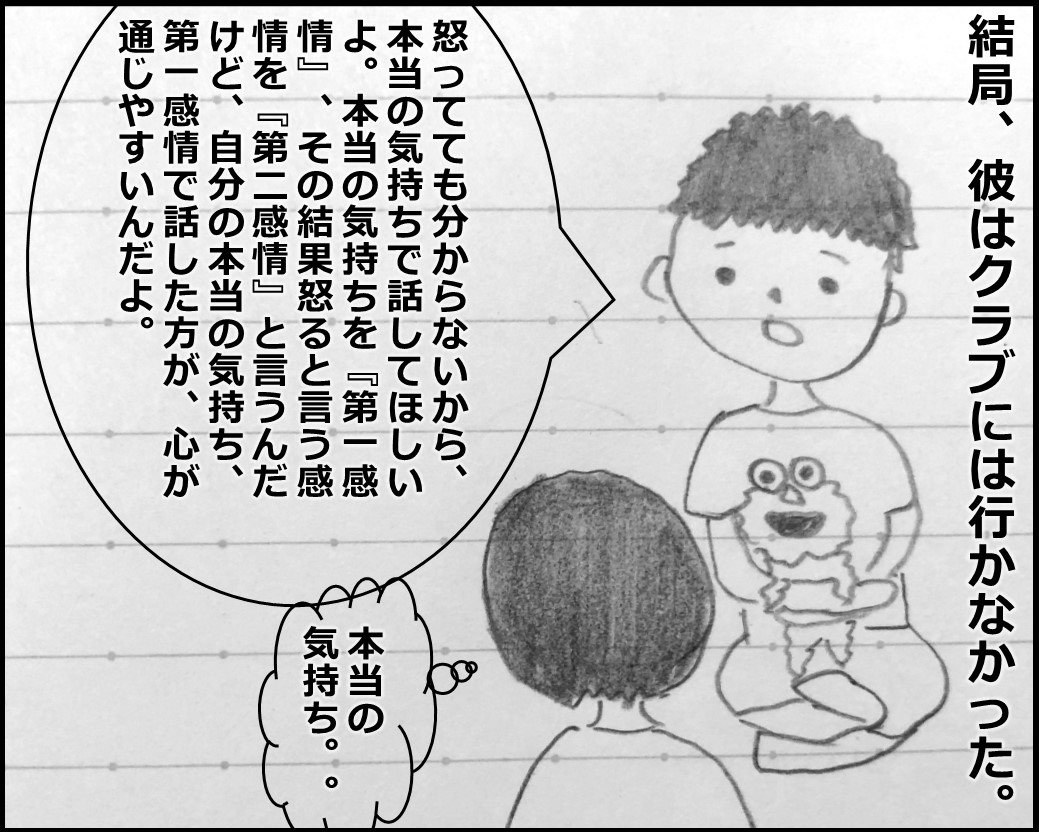 結局、彼はクラブには行かなかった。
怒ってても分からないから、
本当の気持ちで話してほしい
よ。本当の気持ちを『第一感
情』、その結果怒ると言う感
情を『第二感情』と言うんだ
けど、自分の本当の気持ち、
第一感情で話した方が、心が
通じやすいんだよ。
本当の
気持ち。。